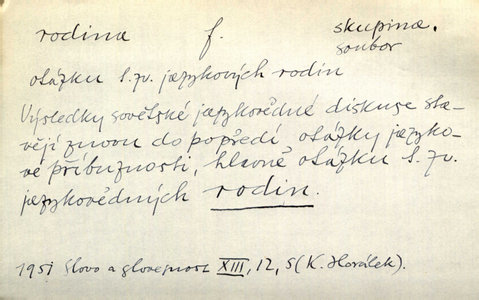 rodina f. skupina.
soubor
otázku t.zv. jazykových rodin
Výsledky sovětské jazykovědné diskuse sta-
vějí znovu do popředí otázky jazyko-
vé příbuznosti, hlavně otázku t. zv.
jazykovědných rodin.
1951 Slovo a slovesnost XIII, 12, 5 (K. Horálek).